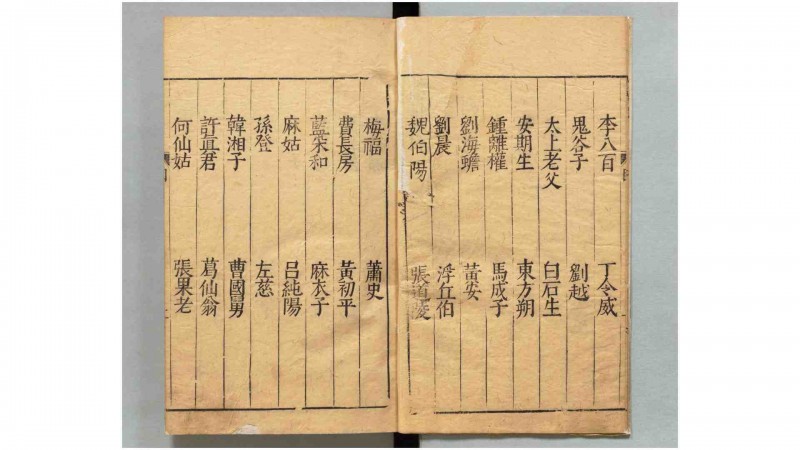 李八百　丁令威
鬼谷子　劉越
太上老父　白石生
安期生　東方朔
鍾離權　馬成子
劉海蟾　黃安
劉晨　浮丘伯
魏伯陽　張道陵
梅福　蕭史
費長房　黃初平
藍采和　麻衣子
麻姑　呂純陽
孫登　左慈
韓湘子　曹國舅
許眞君　葛仙翁
何仙姑　張果老